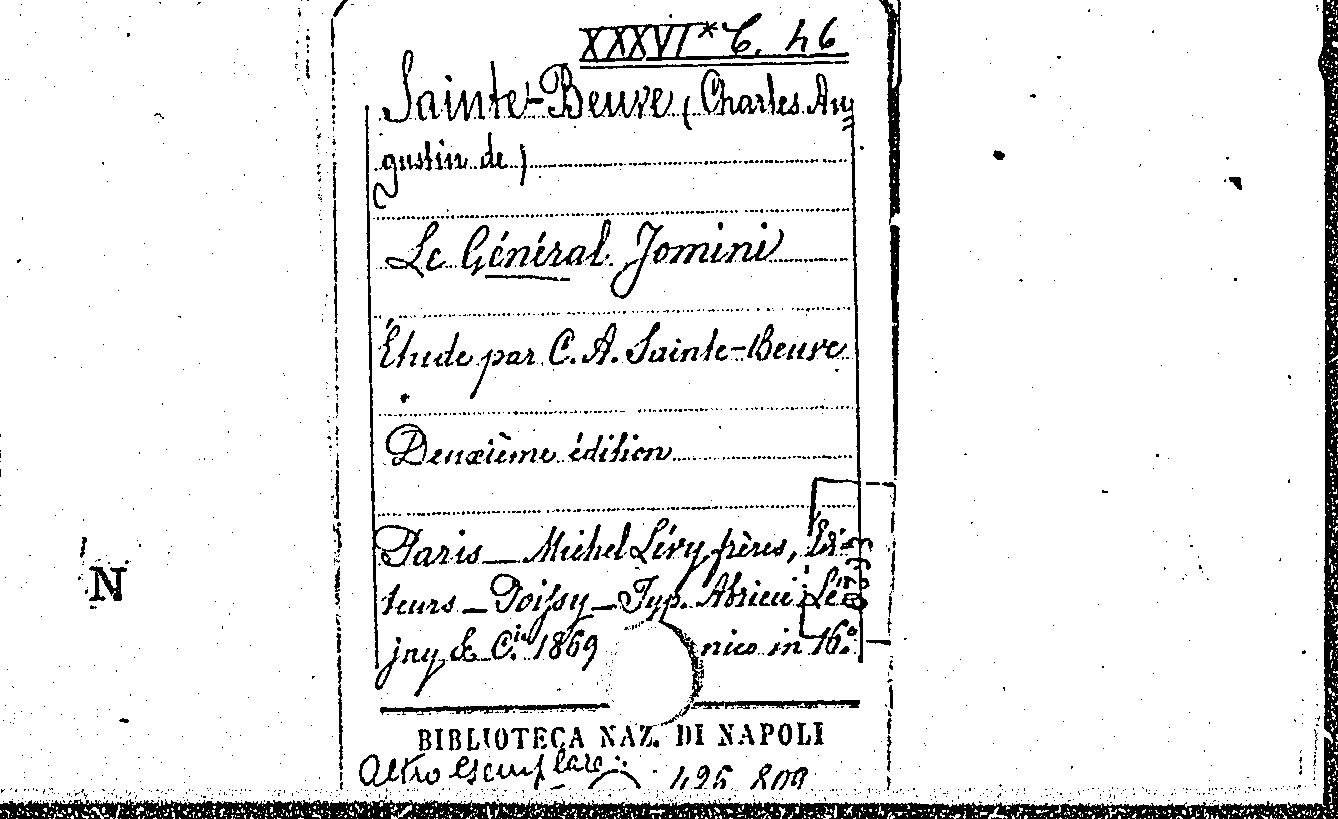 XXXVI* C. 46
Sainte-Beuve (Charles Au=
gustin de)
Le Général Jomini
Étude par C. A. Sainte-Beuve
Deuxième édition
Paris_ Michel Lévy frères, Édi
teurs _ Poissy _ Typ. Lé
jay & Cie. 1869 nico in 16.º
BIBLIOTECA NAZ. DI NAPOLI
Altro esemplare:
N